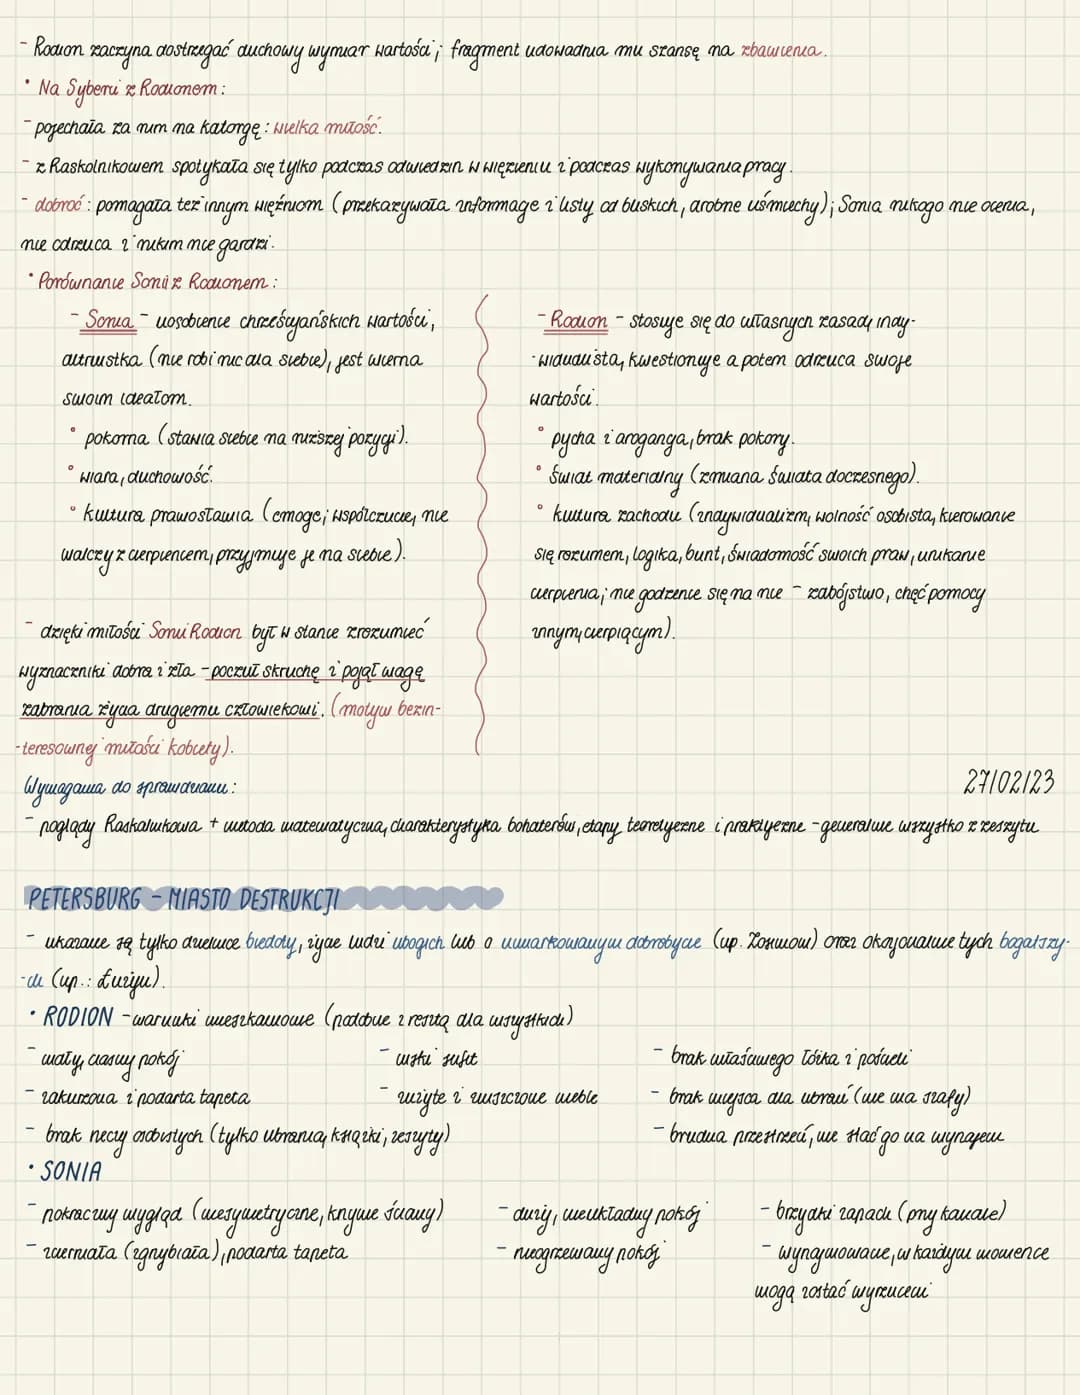 - Rodion zaczyna dostrzegać duchowy wymiar wartości; fragment udowadnia mu szansę na zbawienia.
• Na Syberii z Rodionem:
- pojechała za nim na katorgę: wielka miłość.
- z Raskolnikowem spotykała się tylko podczas odwiedzin w więzieniu i podczas wykonywania pracy.
- dobroć: pomagała też innym więźniom (przekazywała informacje i listy od bliskich, drobne uśmiechy); Sonia nikogo nie ocenia,
nie odrzuca i nikim nie gardzi.
• Porównanie Sonii z Rodionem:
- Sonia - uosobienie chrześcijańskich wartości,
altruistka (nie robi nic dla siebie), jest wierna
swoim ideałom.
° pokorna (stawia siebie na niższej pozycji).
° wiara, duchowość.
° kultura prawosławia (emocje; współczucie, nie
walczy z cierpieniem, przyjmuje je na siebie).
- dzięki miłości Soni Rodion był w stanie zrozumieć
wyznaczniki dobra i zła - poczuł skruchę i pojął wagę
zabrania życia drugiemu człowiekowi. (motyw bezin-
-teresownej miłości kobiety).
- Rodion - stosuje się do własnych zasad, indy-
-widualista, kwestionuje a potem odrzuca swoje
wartości.
° pycha i arogancja, brak pokory.
° świat materialny (zmiana świata doczesnego).
° kultura zachodu (indywidualizm, wolność osobista, kierowanie
się rozumem, logika, bunt, świadomość swoich praw, unikanie
cierpienia; nie godzenie się na nie - zabójstwo, chęć pomocy
innym, cierpiącym).
Wymagania do sprawdzianu: 27/02/23
- poglądy Raskolnikowa + metoda matematyczna, charakterystyka bohaterów, etapy teoretyczne i praktyczne - generalnie wszystko z zeszytu
PETERSBURG - MIASTO DESTRUKCJI
- ukazane są tylko dzielnice biedoty, życie ludzi ubogich lub o umiarkowanym dobrobycie (np. Zosimow) oraz okazjonalnie tych bogatszy-
-ch (np.: Łużyn).
• RODION - warunki mieszkaniowe (podobne z resztą dla wszystkich)
- mały, ciasny pokój - niski sufit - brak właściwego łóżka i pościeli
- zakurzona i podarta tapeta - zużyte i zniszczone meble - brak miejsca dla ubrań (nie ma szafy)
- brak rzeczy osobistych (tylko ubrania, książki, zeszyty) - brudna przestrzeń, nie stać go na wynajem
• SONIA
- pokraczny wygląd (niesymetryczne, krzywe ściany) - duży, nieukładny pokój - brzydki zapach (przy kanale)
- zczerniała (zgnybiała), podarta tapeta - nieogrzewany pokój - wynajmowane, w każdym momencie
mogą zostać wyrzuceni